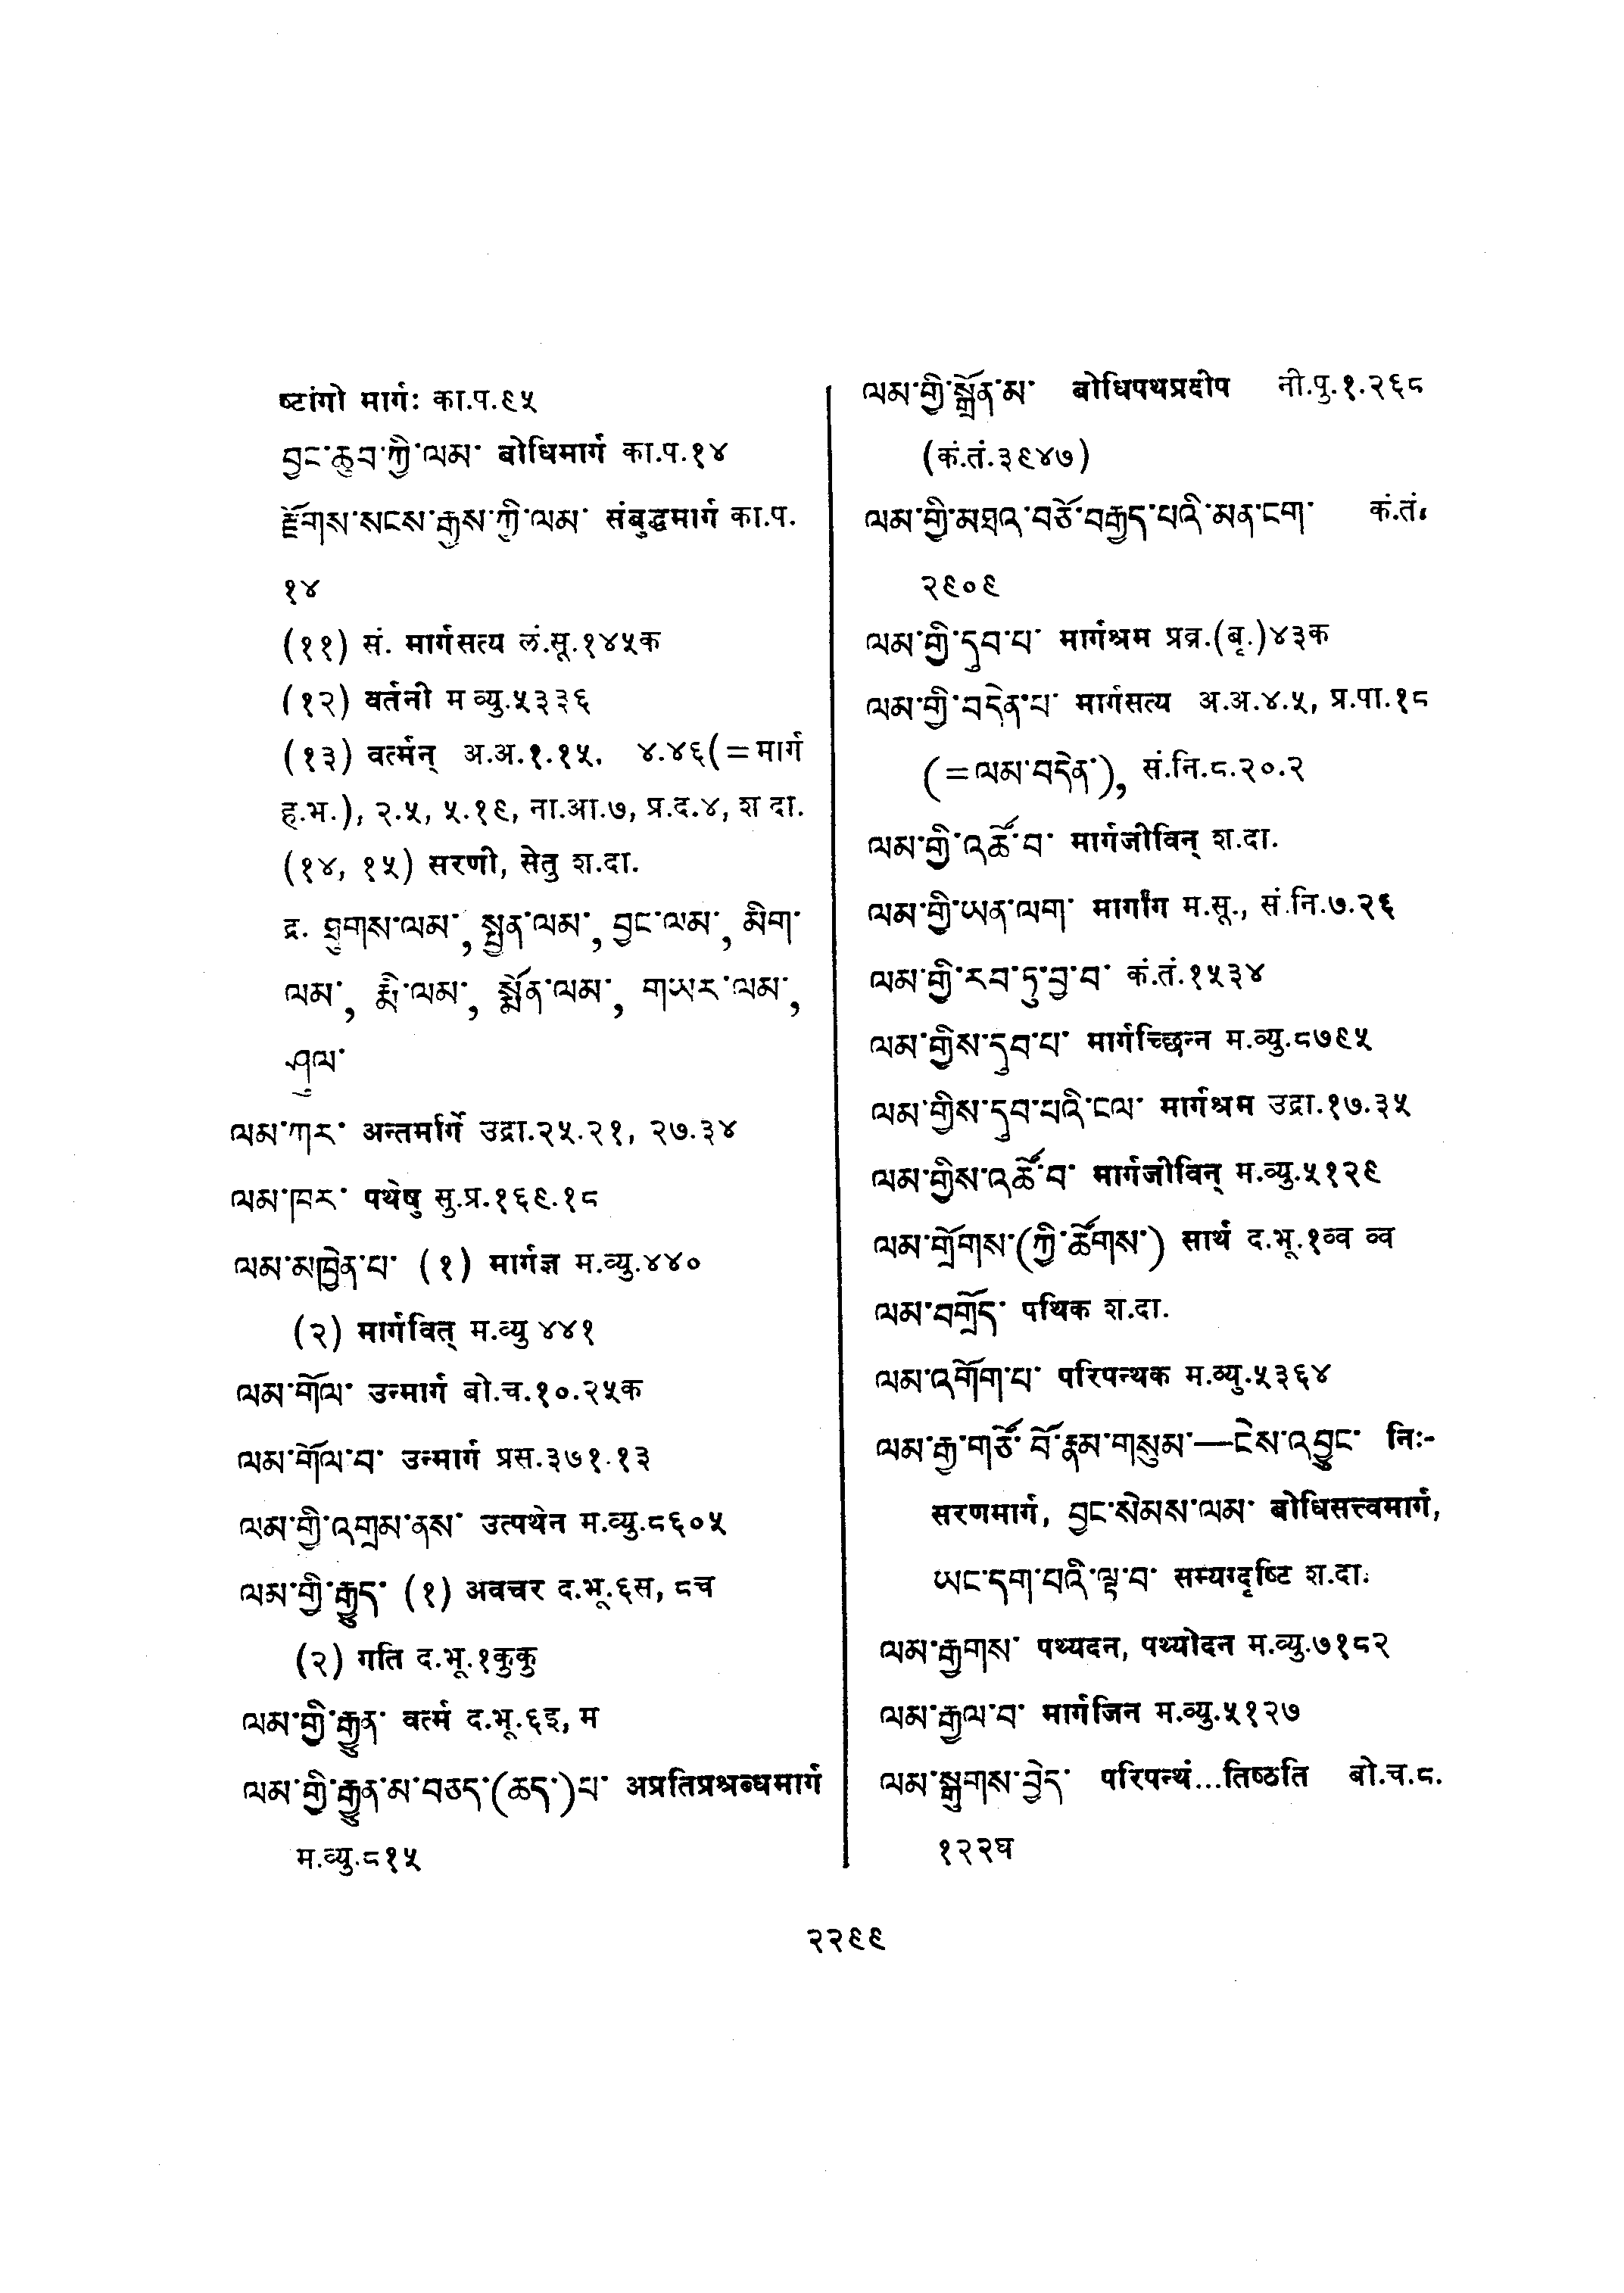 ष्टांगो मार्गः का.प.९५
བྱང་ཆུབ་ཀྱི་ལམ་ बोधिमार्ग का.प.१४
རྫོགས་སངས་རྒྱས་ཀྱི་ལམ་ संबुद्धमार्ग का.प.
१४
(११) सं. मार्गसत्य लं.सू.१४५क
(१२) वर्तनी म व्यु.५३३६
(१३) वर्त्मन् अ.अ.१.१५, ४.४६(=मार्ग
ह.भ.), २.५, ५.१९, ना.आ.७, प्र.द.४, श दा.
(१४, १५) सरणी, सेतु श.दा.
द्र. ཐུགས་ལམ་, སྤྱན་ལམ་, བྱང་ལམ་, མིག་
ལམ་, རྨི་ལམ་, སྨོན་ལམ་, གཡར་ལམ་,
ཤུལ་
ལམ་ཀར་ अन्तर्मार्गे उद्रा.२५.२१, २७.३४
ལམ་ཁར་ पथेषु सु.प्र.१६९.१८
ལམ་མཁྱེན་པ་ (१) मार्गज्ञ म.व्यु.४४०
(२) मार्गवित् म.व्यु ४४१
ལམ་གོལ་ उन्मार्ग बो.च.१०.२५क
ལམ་གོལ་བ་ उन्मार्ग प्रस.३७१.१३
ལམ་གྱི་འགྲམ་ནས་ उत्पथेन म.व्यु.८६०५
ལམ་གྱི་རྒྱུད་ (१) अवचर द.भू.६स, ८च
(२) गति द.भू.१कुकु
ལམ་གྱི་རྒྱུན་ वर्त्म द.भू.६इ, म
ལམ་གྱི་རྒྱུན་མ་བཅད་(ཆད་)པ་ अप्रतिप्रश्रब्धमार्ग
म.व्यु.८१५
ལམ་གྱི་སྒྲོན་མ་ बोधिपथप्रदीप नी.पु.१.२६८
(कं.तं.३९४७)
ལམ་གྱི་མཐའ་བཅོ་བརྒྱད་པའི་མན་ངག་ कं.तं.
२९०९
ལམ་གྱི་དུབ་པ་ मार्गश्रम प्रव्र.(बृ.)४३क
ལམ་གྱི་བདེན་པ་ मार्गसत्य अ.अ.४.५, प्र.पा.१८
(=ལམ་བདེན་), सं.नि.८.२०.२
ལམ་གྱི་འཚོ་བ་ मार्गजीविन् श.दा.
ལམ་གྱི་ཡན་ལག་ मार्गांग म.सू., सं.नि.७.२६
ལམ་གྱི་རབ་ཏུ་བྱ་བ་ कं.तं.१५३४
ལམ་གྱིས་དུབ་པ་ मार्गच्छिन्न म.व्यु.८७९५
ལམ་གྱིས་དུབ་པའི་ངལ་ मार्गश्रम उद्रा.१७.३५
ལམ་གྱིས་འཚོ་བ་ मार्गजीविन् म.व्यु.५१२९
ལམ་གྲོགས་(ཀྱི་ཚོགས་) सार्थ द.भू.१व्व व्व
ལམ་བགྲོད་ पथिक श.दा.
ལམ་འགོག་པ་ परिपन्थक म.व्यु.५३६४
ལམ་རྒྱ་གཙོ་བོ་རྣམ་གསུམ་—ངེས་འབྱུང་ निः-
सरणमार्ग, བྱང་སེམས་ལམ་ बोधिसत्त्वमार्ग,
ཡང་དག་པའི་ལྟ་བ་ सम्यग्दृष्टि श.दा.
ལམ་རྒྱགས་ पथ्यदन, पथ्योदन म.व्यु.७१८२
ལམ་རྒྱལ་བ་ मार्गजिन म.व्यु.५१२७
ལམ་སྒུགས་བྱེད་ परिपन्थं...तिष्ठति बो.च.८.
१२२घ
२२९९